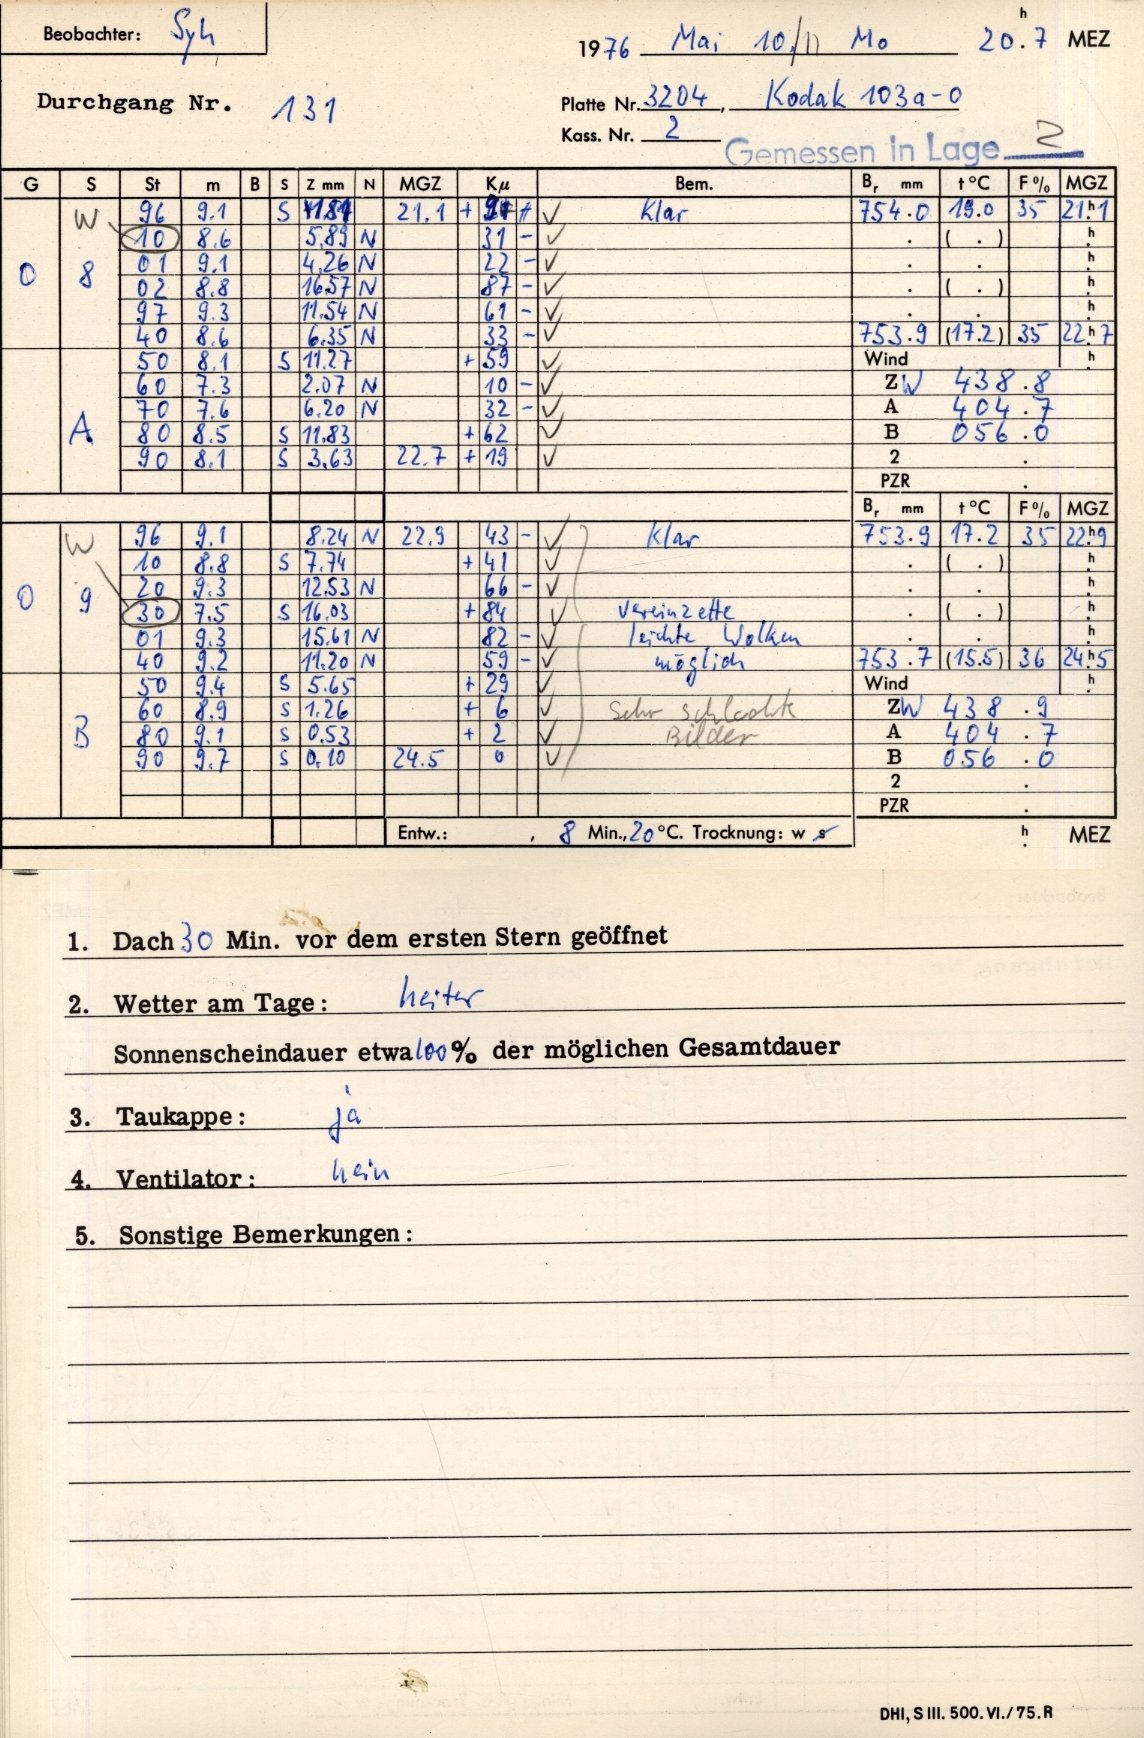 Beobachter: Syh
1976 Mai 10/11 Mo 20.h7 MEZ
Durchgang Nr. 131
Platte Nr. 3204, Kodak 103a-O
Kass. Nr. 2
Gemessen in Lage 2
G S St m B S Z mm N MGZ Kµ Bem. Br mm t°C F% MGZ
W 96 9.1 S 21.1 + ✓ Klar 754.0 19.0 35 21h1
10 8.6 5.89 N 31 - ✓ . ( . ) h
0 8 01 9.1 4.26 N 22 - ✓ . . h
02 8.8 16.57 N 87 - ✓ . ( . ) h
97 9.3 11.54 N 61 - ✓ . . h
40 8.6 6.35 N 33 - ✓ 753.9 (17.2) 35 22h7
50 8.1 S 11.27 + 59 ✓ Wind h
60 7.3 2.07 N 10 - ✓ ZW 438.8
70 7.6 6.20 N 32 - ✓ A 404.7
A 80 8.5 S 11.83 + 62 ✓ B 056.0
90 8.1 S 3.63 22.7 + 19 ✓ 2 .
PZR .
Br mm t°C F% MGZ
W 96 9.1 8.24 N 22.9 43 - ✓ Klar 753.9 17.2 35 22h9
10 8.8 S 7.74 + 41 ✓ . ( . ) h
20 9.3 12.53 N 66 - ✓ . . h
0 9 30 7.5 S 16.03 + 84 ✓ vereinzelte . ( . ) h
01 9.3 15.61 N 82 - ✓ leichte Wolken . . h
40 9.2 11.20 N 59 - ✓ möglich 753.7 (15.5) 36 24h5
50 9.4 S 5.65 + 29 ✓ Wind h
60 8.9 S 1.26 + 6 ✓ Sehr schlechte ZW 438.9
B 80 9.1 S 0.53 + 2 ✓ Bilder A 404.7
90 9.7 S 0.10 24.5 0 ✓ B 056.0
2 .
PZR .
Entw.: , 8 Min., 20°C. Trocknung: w s h. MEZ
1. Dach 30 Min. vor dem ersten Stern geöffnet
2. Wetter am Tage: heiter
Sonnenscheindauer etwa 100% der möglichen Gesamtdauer
3. Taukappe: ja
4. Ventilator: nein
5. Sonstige Bemerkungen:
DHI, S III. 500. VI./75. R